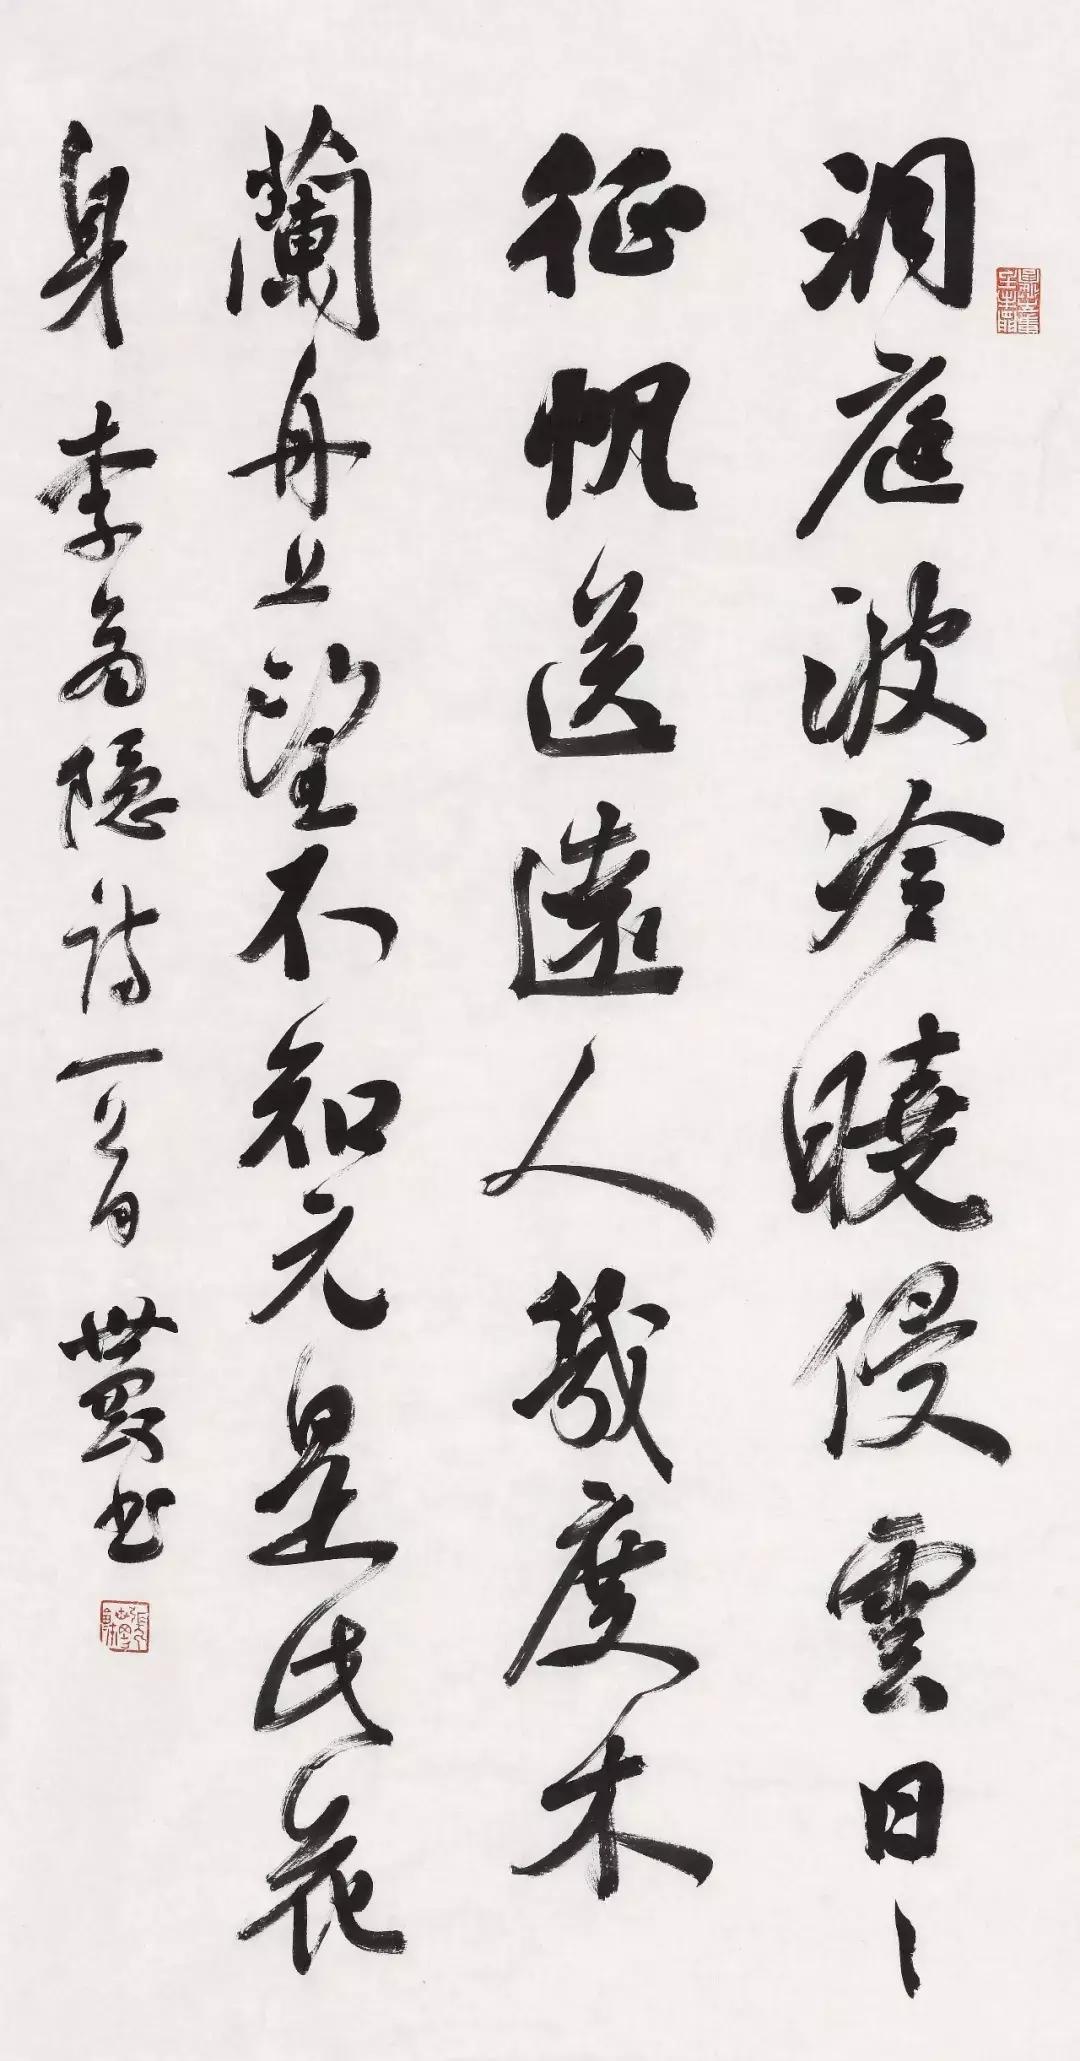 洞庭波冷曉侵雲日〻
征帆送遠人幾度木
蘭舟上望不知元是此花
身 李商隱詩一首 世勳书